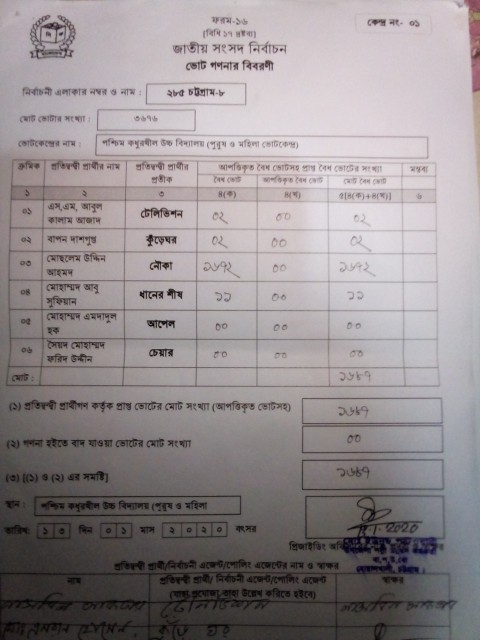 ফরম-১৬
[বিধি ১৭ দ্রষ্টব্য]
কেন্দ্র নং- ০১
জাতীয় সংসদ নির্বাচন
ভোট গণনার বিবরণী
নির্বাচনী এলাকার নম্বর ও নাম : ২৮৫ চট্টগ্রাম-৮
মোট ভোটার সংখ্যা : ৩৬৭৬
ভোটকেন্দ্রের নাম : পশ্চিম কধুরখীল উচ্চ বিদ্যালয় (পুরুষ ও মহিলা ভোটকেন্দ্র)
ক্রমিক প্রতিদ্বন্দ্বী প্রার্থীর নাম প্রতিদ্বন্দ্বী প্রার্থীর প্রতীক আপত্তিকৃত বৈধ ভোটসহ প্রাপ্ত বৈধ ভোটের সংখ্যা মন্তব্য
বৈধ ভোট আপত্তিকৃত বৈধ ভোট মোট বৈধ ভোট
১ ২ ৩ ৪(ক) ৪(খ) ৫[৪(ক)+৪(খ)] ৬
০১ এস,এম, আবুল কালাম আজাদ টেলিভিশন ০২ ০০ ০২
০২ বাপন দাশগুপ্ত কুঁড়েঘর ০২ ০০ ০২
০৩ মোছলেম উদ্দিন আহমদ নৌকা ১৬৭২ ০০ ১৬৭২
০৪ মোহাম্মদ আবু সুফিয়ান ধানের শীষ ১১ ০০ ১১
০৫ মোহাম্মদ এমদাদুল হক আপেল ০০ ০০ ০০
০৬ সৈয়দ মোহাম্মদ ফরিদ উদ্দীন চেয়ার ০০ ০০ ০০
মোট : ১৬৮৭
(১) প্রতিদ্বন্দ্বী প্রার্থীগণ কর্তৃক প্রাপ্ত ভোটের মোট সংখ্যা (আপত্তিকৃত ভোটসহ) ১৬৮৭
(২) গণনা হইতে বাদ যাওয়া ভোটের মোট সংখ্যা ০০
(৩) [(১) ও (২) এর সমষ্টি] ১৬৮৭
স্থান : পশ্চিম কধুরখীল উচ্চ বিদ্যালয় (পুরুষ ও মহিলা
তারিখ: ১৩ দিন ০১ মাস ২০২০ বৎসর
প্রিজাইডিং
প্রতিদ্বন্দ্বী প্রার্থী/নির্বাচনী এজেন্ট/পোলিং এজেন্টের নাম ও স্বাক্ষর
নাম প্রতিদ্বন্দ্বী প্রার্থী/ নির্বাচনী এজেন্ট/পোলিং এজেন্ট স্বাক্ষর
(যাহা প্রযোজ্য তাহা উল্লেখ করিতে হইবে)
টেলিভিশন